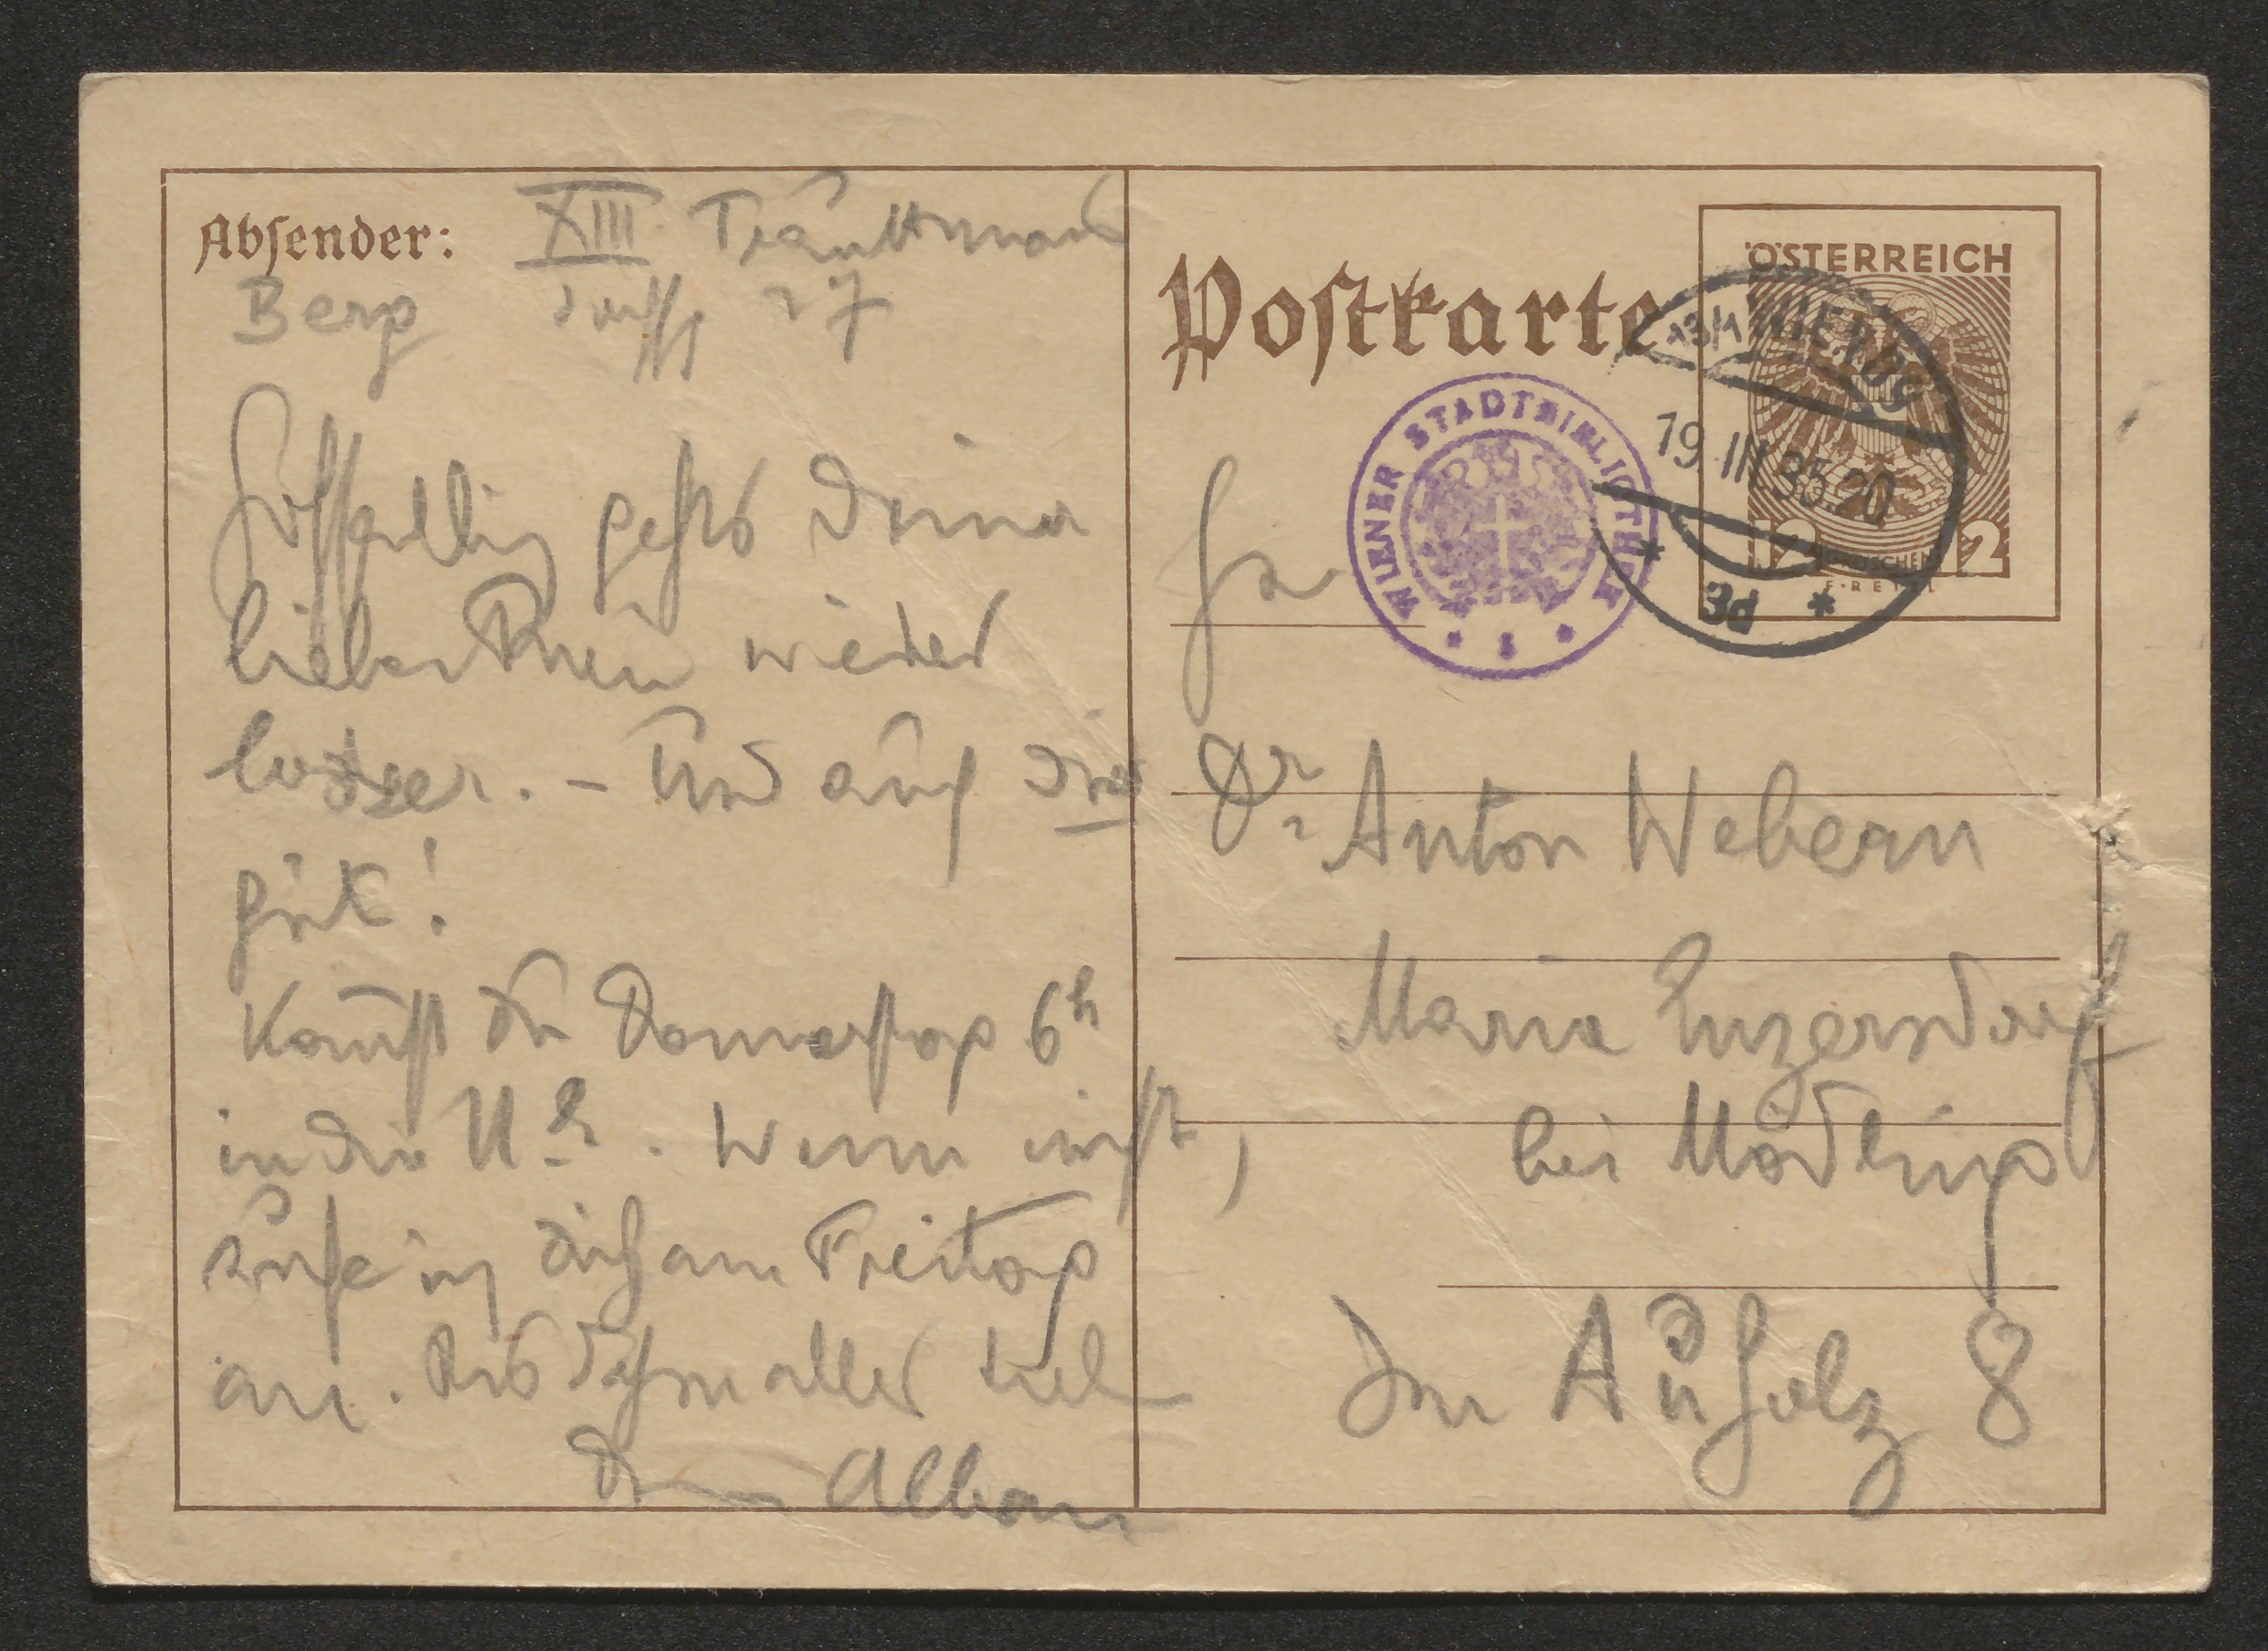 Absender:
XIII. Trauttmans
Berg dorff 27
Hoffentlich gehts Deiner
lieben Frau wieder
besser. – Und auch Dir
gut!
Kommst Du Donnerstag 6h
in die U. E. Wenn nicht,
rufe ich Dich am Freitag
an. Bis dahin alles
Dein Alban
Postkarte
ÖSTERREICH
12 GROSCHEN 12
13/1 WIEN 89
19. III. 35. 20
* 3d *
WIENER STADTBIBLIOTHEK
Hn
Dr. Anton Webern
Maria Enzersdorf
bei Mödling
Im Auholz 8